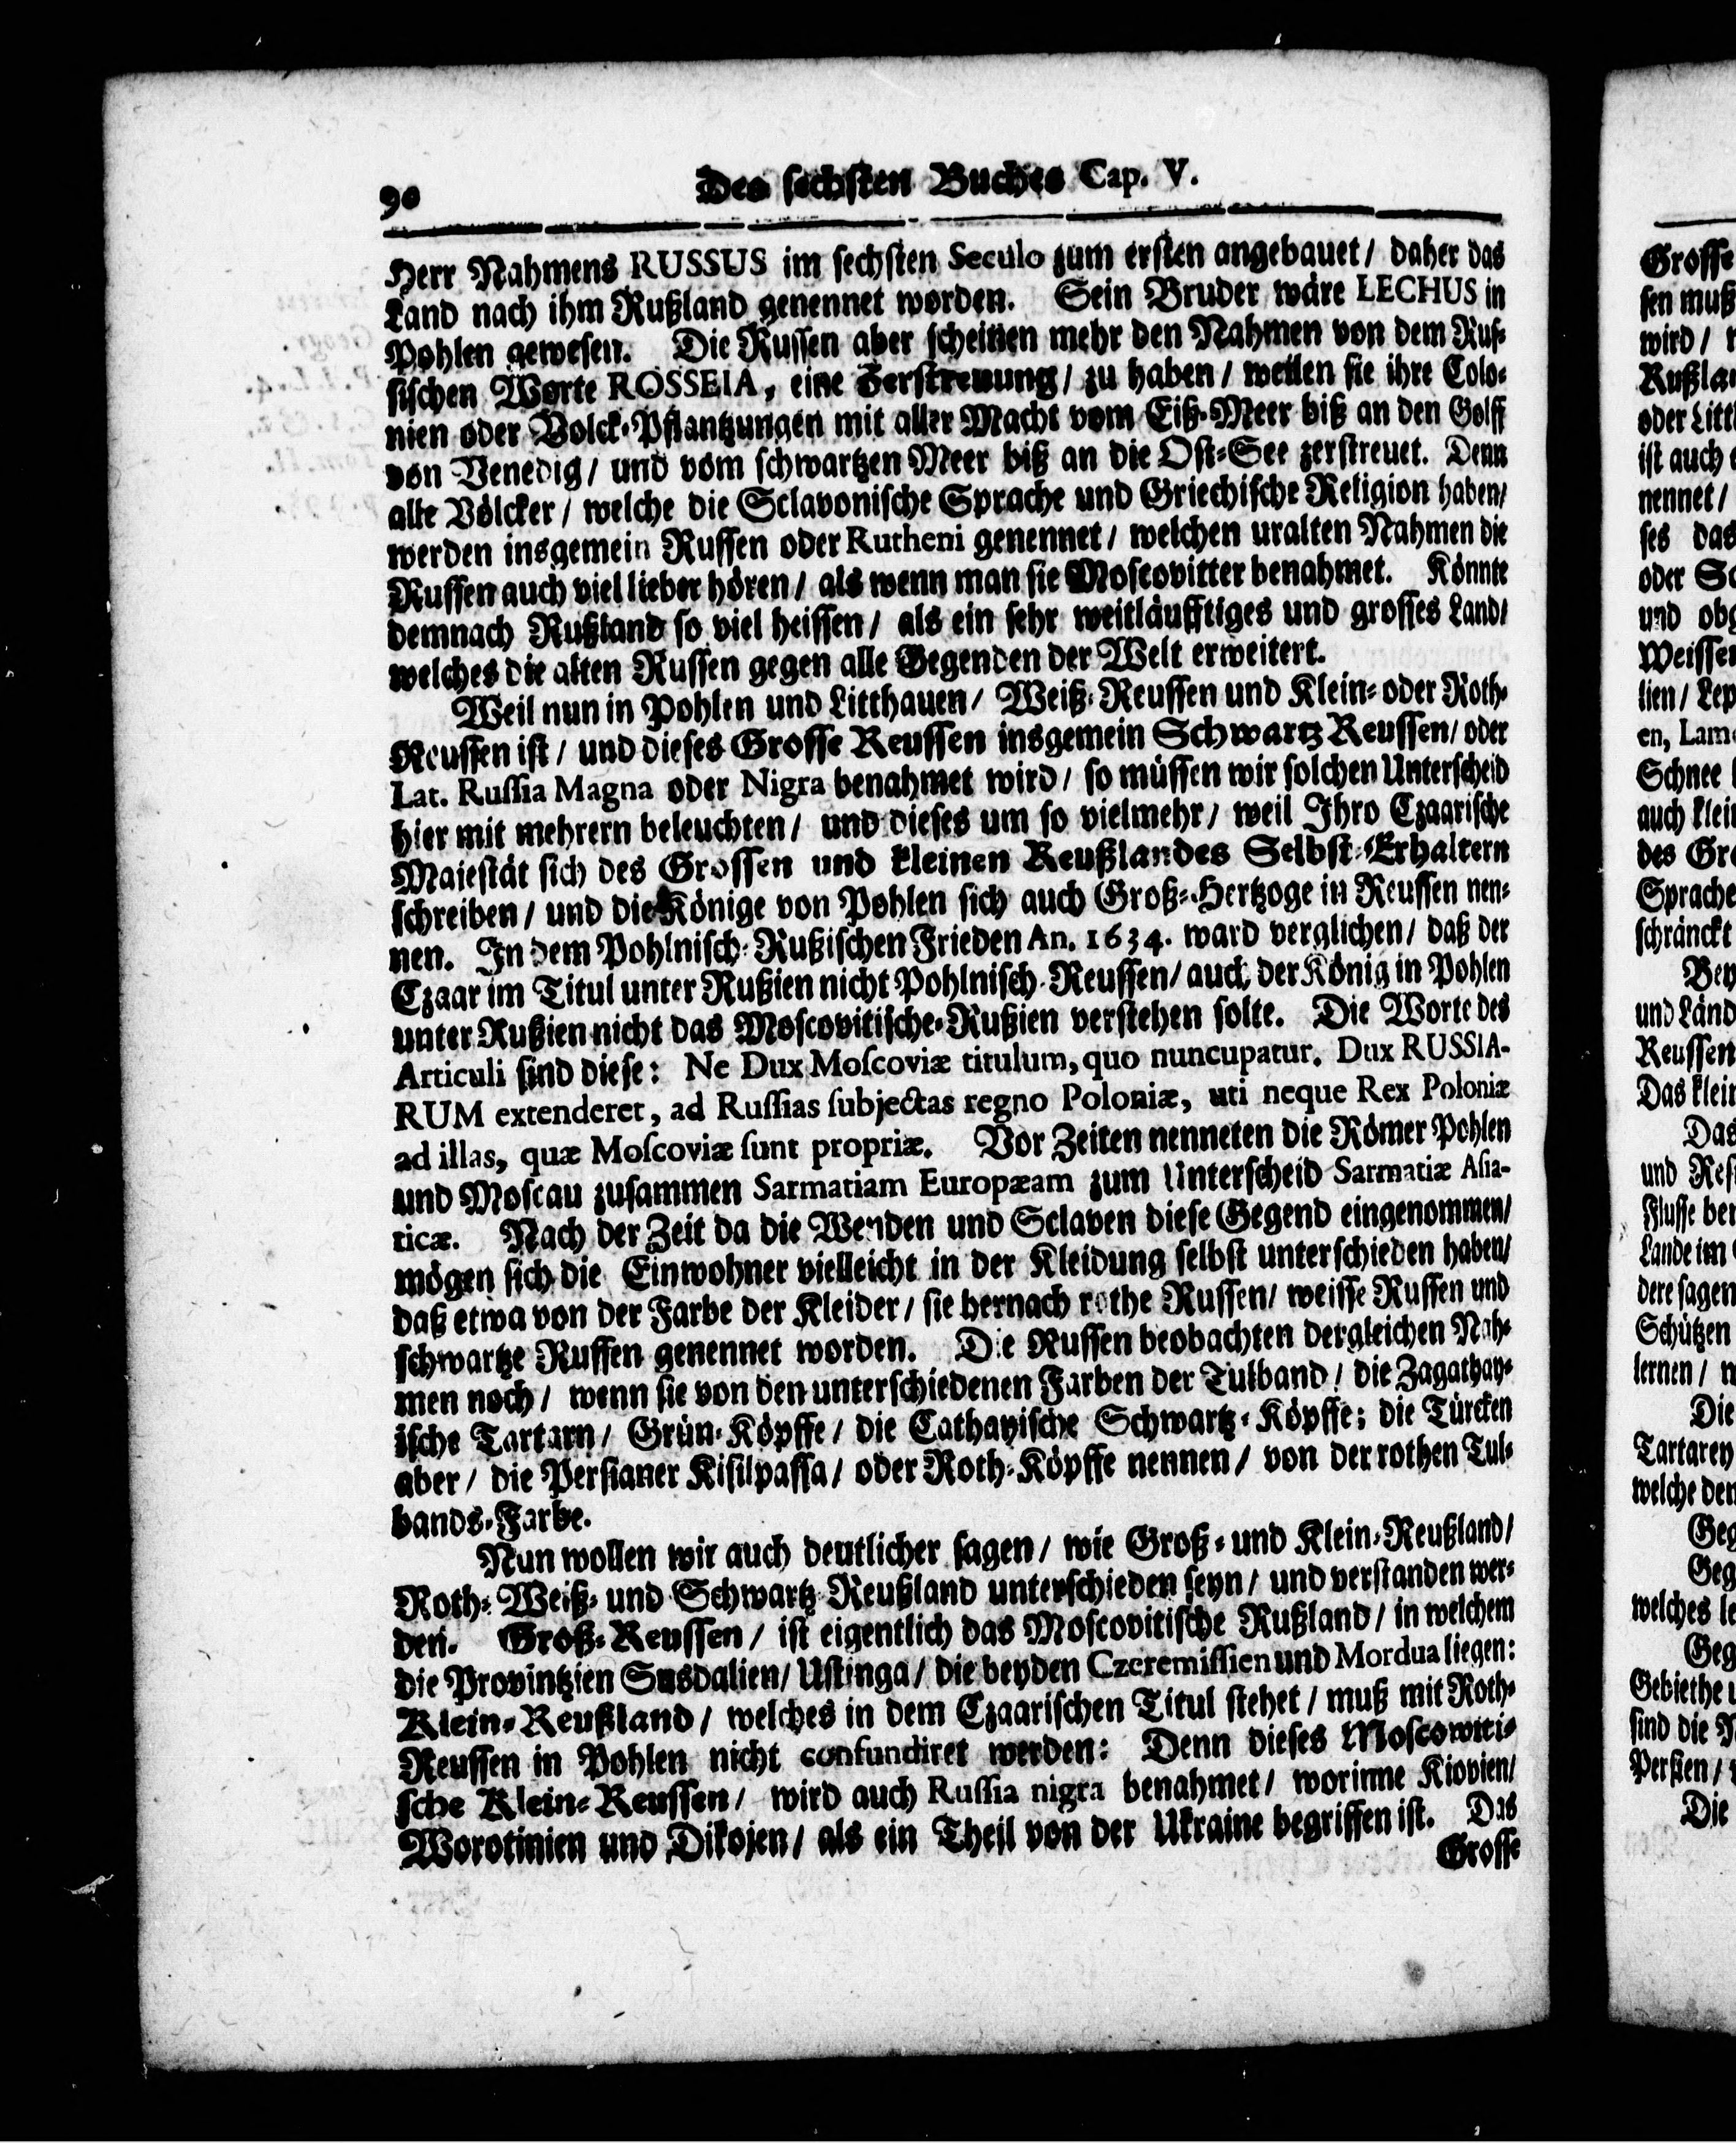 90
Des sechsten Buches Cap. V.
Herr Nahmens RUSSUS im sechsten Seculo zum ersten angebauet/ daher das
Land nach ihm Rußland genennet worden. Sein Bruder wäre LECHUS in
Pohlen gewesen. Die Russen aber scheinen mehr den Nahmen von dem Rus-
sischen Worte ROSSEIA, eine Zerstreuung/ zu haben/ weilen sie ihre Colo-
nien oder Volck-Pflantzungen mit aller Macht vom Eiß-Meer biß an den Golff
von Venedig/ und vom schwartzen Meer biß an die Ost-See zerstreuet. Denn
alle Völcker/ welche die Sclavonische Sprache und Griechische Religion haben/
werden insgemein Russen oder Rutheni genennet/ welchen uralten Nahmen die
Russen auch viel lieber hören/ als wenn man sie Moscovitter benahmet. Könnte
demnach Rußland so viel heissen/ als ein sehr weitläufftiges und grosses Land/
welches die alten Russen gegen alle Gegenden der Welt erweitert.
Weil nun in Pohlen und Litthauen/ Weiß-Reussen und Klein- oder Roth-
Reussen ist/ und dieses Grosse Reussen insgemein Schwartz Reussen/ oder
Lat. Russia Magna oder Nigra benahmet wird/ so müssen wir solchen Unterscheid
hier mit mehrern beleuchten/ und dieses um so vielmehr/ weil Ihro Czaarische
Majestät sich des Grossen und kleinen Reußlandes Selbst-Erhaltern
schreiben/ und die Könige von Pohlen sich auch Groß-Hertzoge in Reussen nen-
nen. In dem Pohlnisch-Rußischen Frieden An. 1634. ward verglichen/ daß der
Czaar im Titul unter Rußien nicht Pohlnisch-Reussen/ auch der König in Pohlen
unter Rußien nicht das Moscovitische-Rußien verstehen solte. Die Worte des
Articuli sind diese: Ne Dux Moscoviæ titulum, quo nuncupatur. Dux RUSSIA-
RUM extenderet, ad Russias subjectas regno Poloniæ, uti neque Rex Poloniæ
ad illas, quæ Moscoviæ sunt propriæ. Vor Zeiten nenneten die Römer Pohlen
und Moscau zusammen Sarmatiam Europæam zum Unterscheid Sarmatiæ Asia-
ticæ. Nach der Zeit da die Wenden und Sclaven diese Gegend eingenommen/
mögen sich die Einwohner vielleicht in der Kleidung selbst unterschieden haben/
daß etwa von der Farbe der Kleider/ sie hernach rothe Russen/ weisse Russen und
schwartze Russen genennet worden. Die Russen beobachten dergleichen Nah-
men noch/ wenn sie von den unterschiedenen Farben der Tulband/ die Zagathay-
ische Tartarn/ Grün-Köpffe/ die Cathayische Schwartz-Köpffe; die Türcken
aber/ die Persianer Kisilpassa/ oder Roth-Köpffe nennen/ von der rothen Tul-
bands-Farbe.
Nun wollen wir auch deutlicher sagen/ wie Groß- und Klein-Reußland/
Roth- Weiß- und Schwartz Reußland unterschieden seyn/ und verstanden wer-
den. Groß-Reussen/ ist eigentlich das Moscovitische Rußland/ in welchem
die Provintzien Susdalien/ Ustinga/ die beyden Czeremissien und Mordua liegen:
Klein-Reußland/ welches in dem Czaarischen Titul stehet/ muß mit Roth-
Reussen in Pohlen nicht confundiret werden: Denn dieses Moscowiti-
sche Klein-Reussen/ wird auch Russia nigra benahmet/ worinne Kiovien/
Worotinien und Dikojen/ als ein Theil von der Ukraine begriffen ist. Das
Grosse